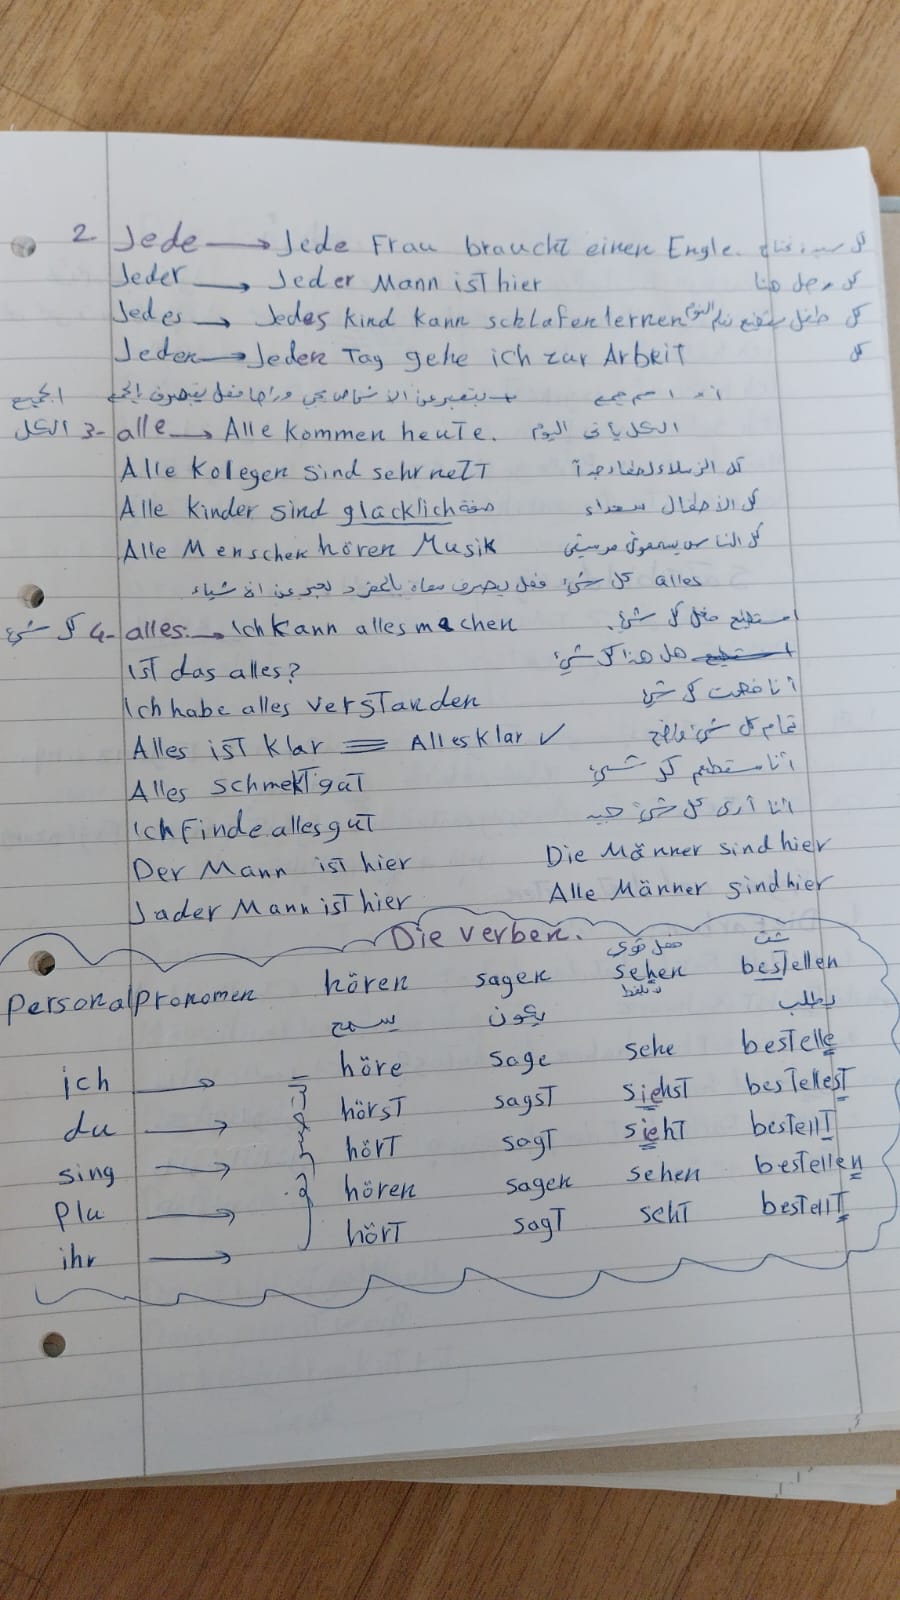 2 Jede → Jede Frau braucht einen Engle. كل
Jeder → Jeder Mann ist hier كل رجل هنا
Jedes → Jedes Kind kann schlafen lernen كل طفل يستطيع تعلم النوم
Jeden → Jeden Tag gehe ich zur Arbeit كل
الجميع
الكل 3- alle → Alle kommen heute. الكل يأتي اليوم
Alle Kolegen sind sehr nett كل الزملاء لطفاء جداً
Alle Kinder sind glacklich صفة كل الأطفال سعداء
Alle Menschen hören Musik كل الناس يسمعون موسيقى
alles كل شيء فعل يصرف معاه بالمفرد
كل شيء 4- alles. → Ich kann alles machen استطيع فعل كل شيء.
Ist das alles? هل هذا كل شيء
Ich habe alles verstanden أنا فهمت كل شيء
Alles ist klar = Alles klar ✓ تمام كل شيء واضح
Alles schmekt gut
Ich finde alles gut أنا أرى كل شيء جيد
Der Mann ist hier Die Männer sind hier
Jader Mann ist hier Alle Männer sind hier
Die verben.
فعل قوي
Personalpronomen hören sagen sehen bestellen
يسمع يطلب
ich → höre sage sehe bestelle
du → hörst sagst siehst bestellest
sing → hört sagt sieht bestellt
Plu → hören sagen sehen bestellen
ihr → hört sagt seht bestellt